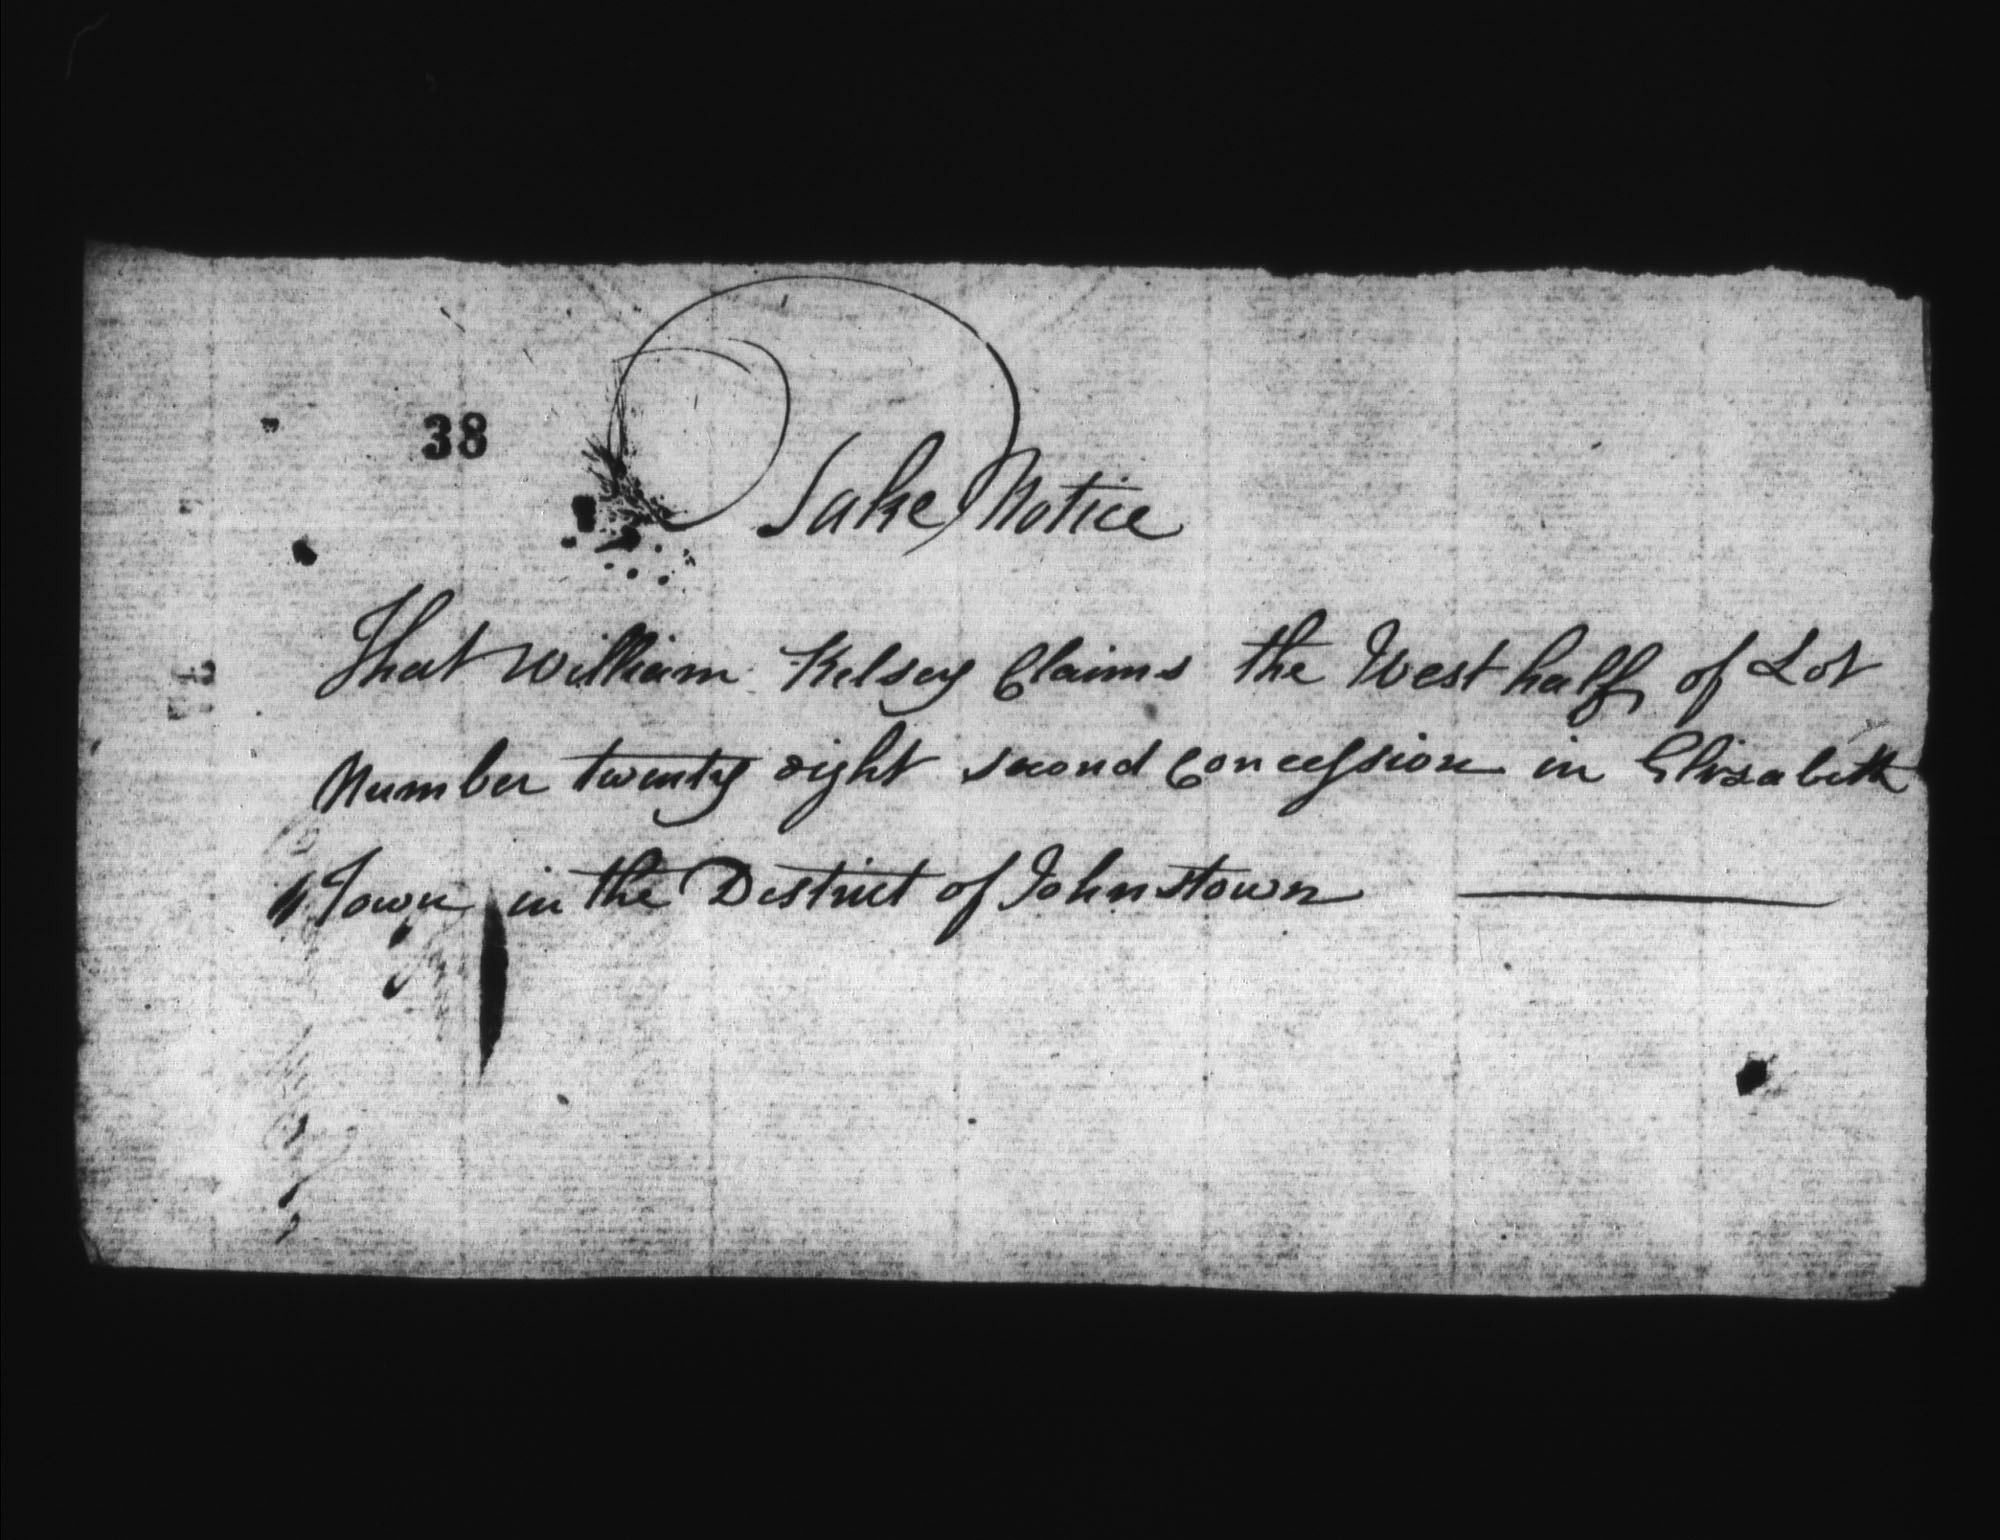 38
Take Notice
That William Kelsey Claims the West half of Lot
Number twenty eight second Concession in Elizabeth
"Town in the District of Johnstown